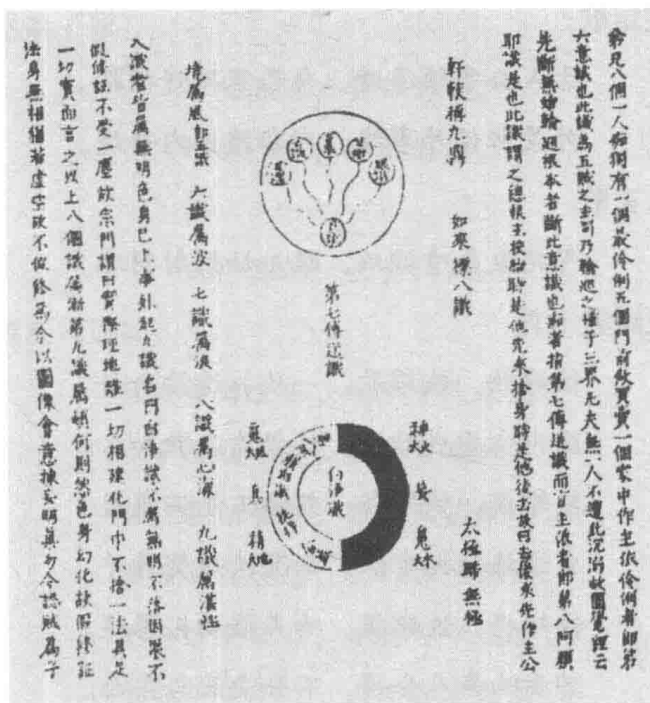 弟兄八個一人痴獨有一個最伶俐五個門前做買賣一個家中作主依伶俐者即第
六意識也此識為五賊之主司乃輪迴之種子三界凡夫無一人不遭此沉溺故圓覺經云
先斷無始輪迴根本者斷此意識也痴者指第七傳送識而言主依者即第八阿賴
耶識是也此識謂之總報主投胎時是他先來捨身時是他後去故曰去後來先作主公
軒轅稱九鼎 如來八識 太極歸無極
第七傳送識
白淨識
境屬風前五識 六識屬波 七識屬浪 八識屬心源 九識屬湛性
八識皆屬無明色身已 九識名曰白淨識不屬無明不落因果不
假修証不受塵故宗門謂曰實際理地離一切相建化門中不捨一法具足
一切實而言之以上八個識屬漸第九識屬頓何則然色身幻化故假修証
法身無相猶若虛空故不假修為今以圖像會意據妄明真勿令認賊為子